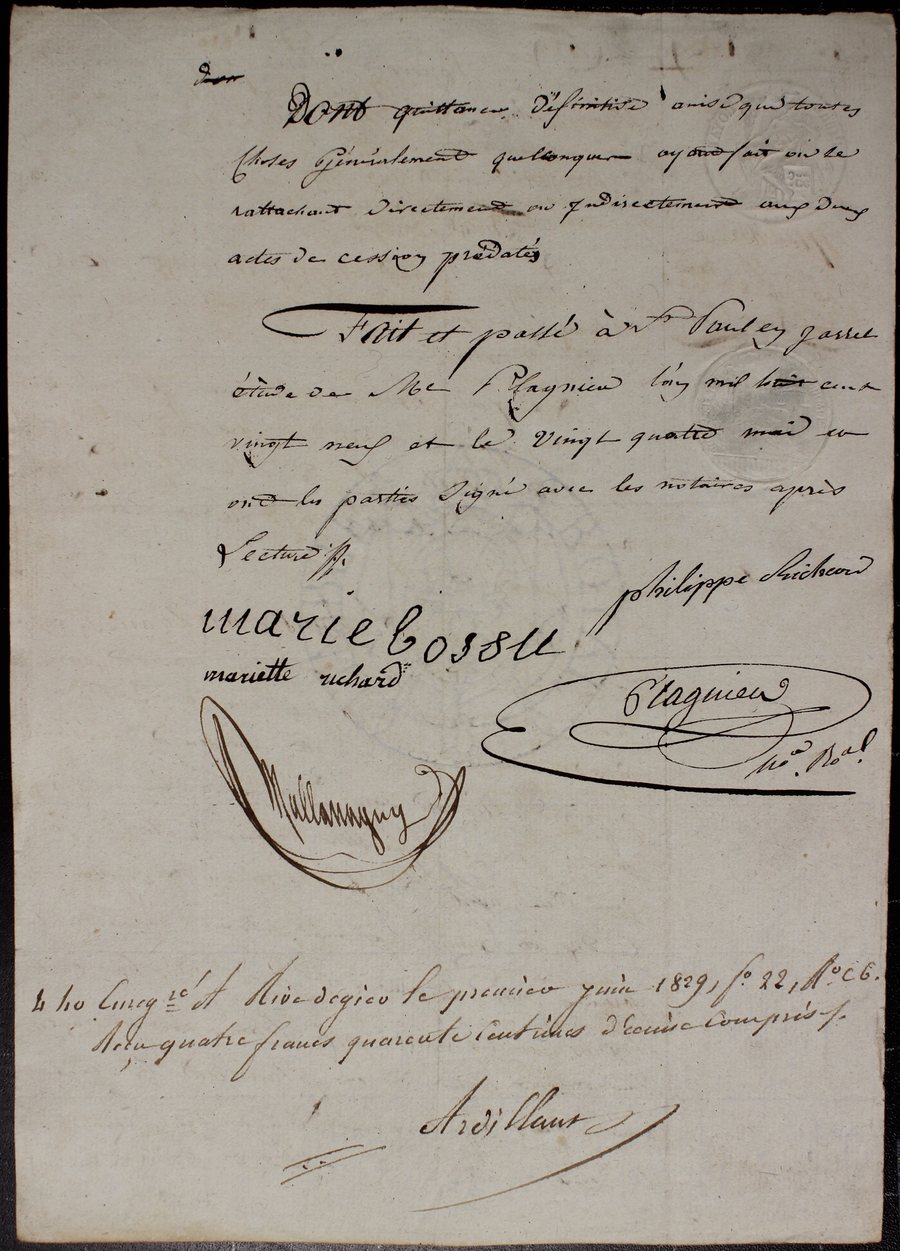 Dont quittance définitive ainsi que toutes
choses généralement quelconques ayant fait ou se
rattachant directement ou indirectement aux deux
actes de cession prédatés
Fait et passé à St Paul en Jarret
étude de Me Plagnieu l'an mil huit cent
vingt neuf et le vingt quatre mai et
ont les parties signé avec les notaires après
Lecture
philippe Richard
marie bossu
mariette richard
Plagnieu
No. Roal.
4 40 Enregré à Rivedegier le premier juin 1829, fo. 22, Ro. C 6.
Reçu quatre francs quarante centimes décime compris
Ardillant